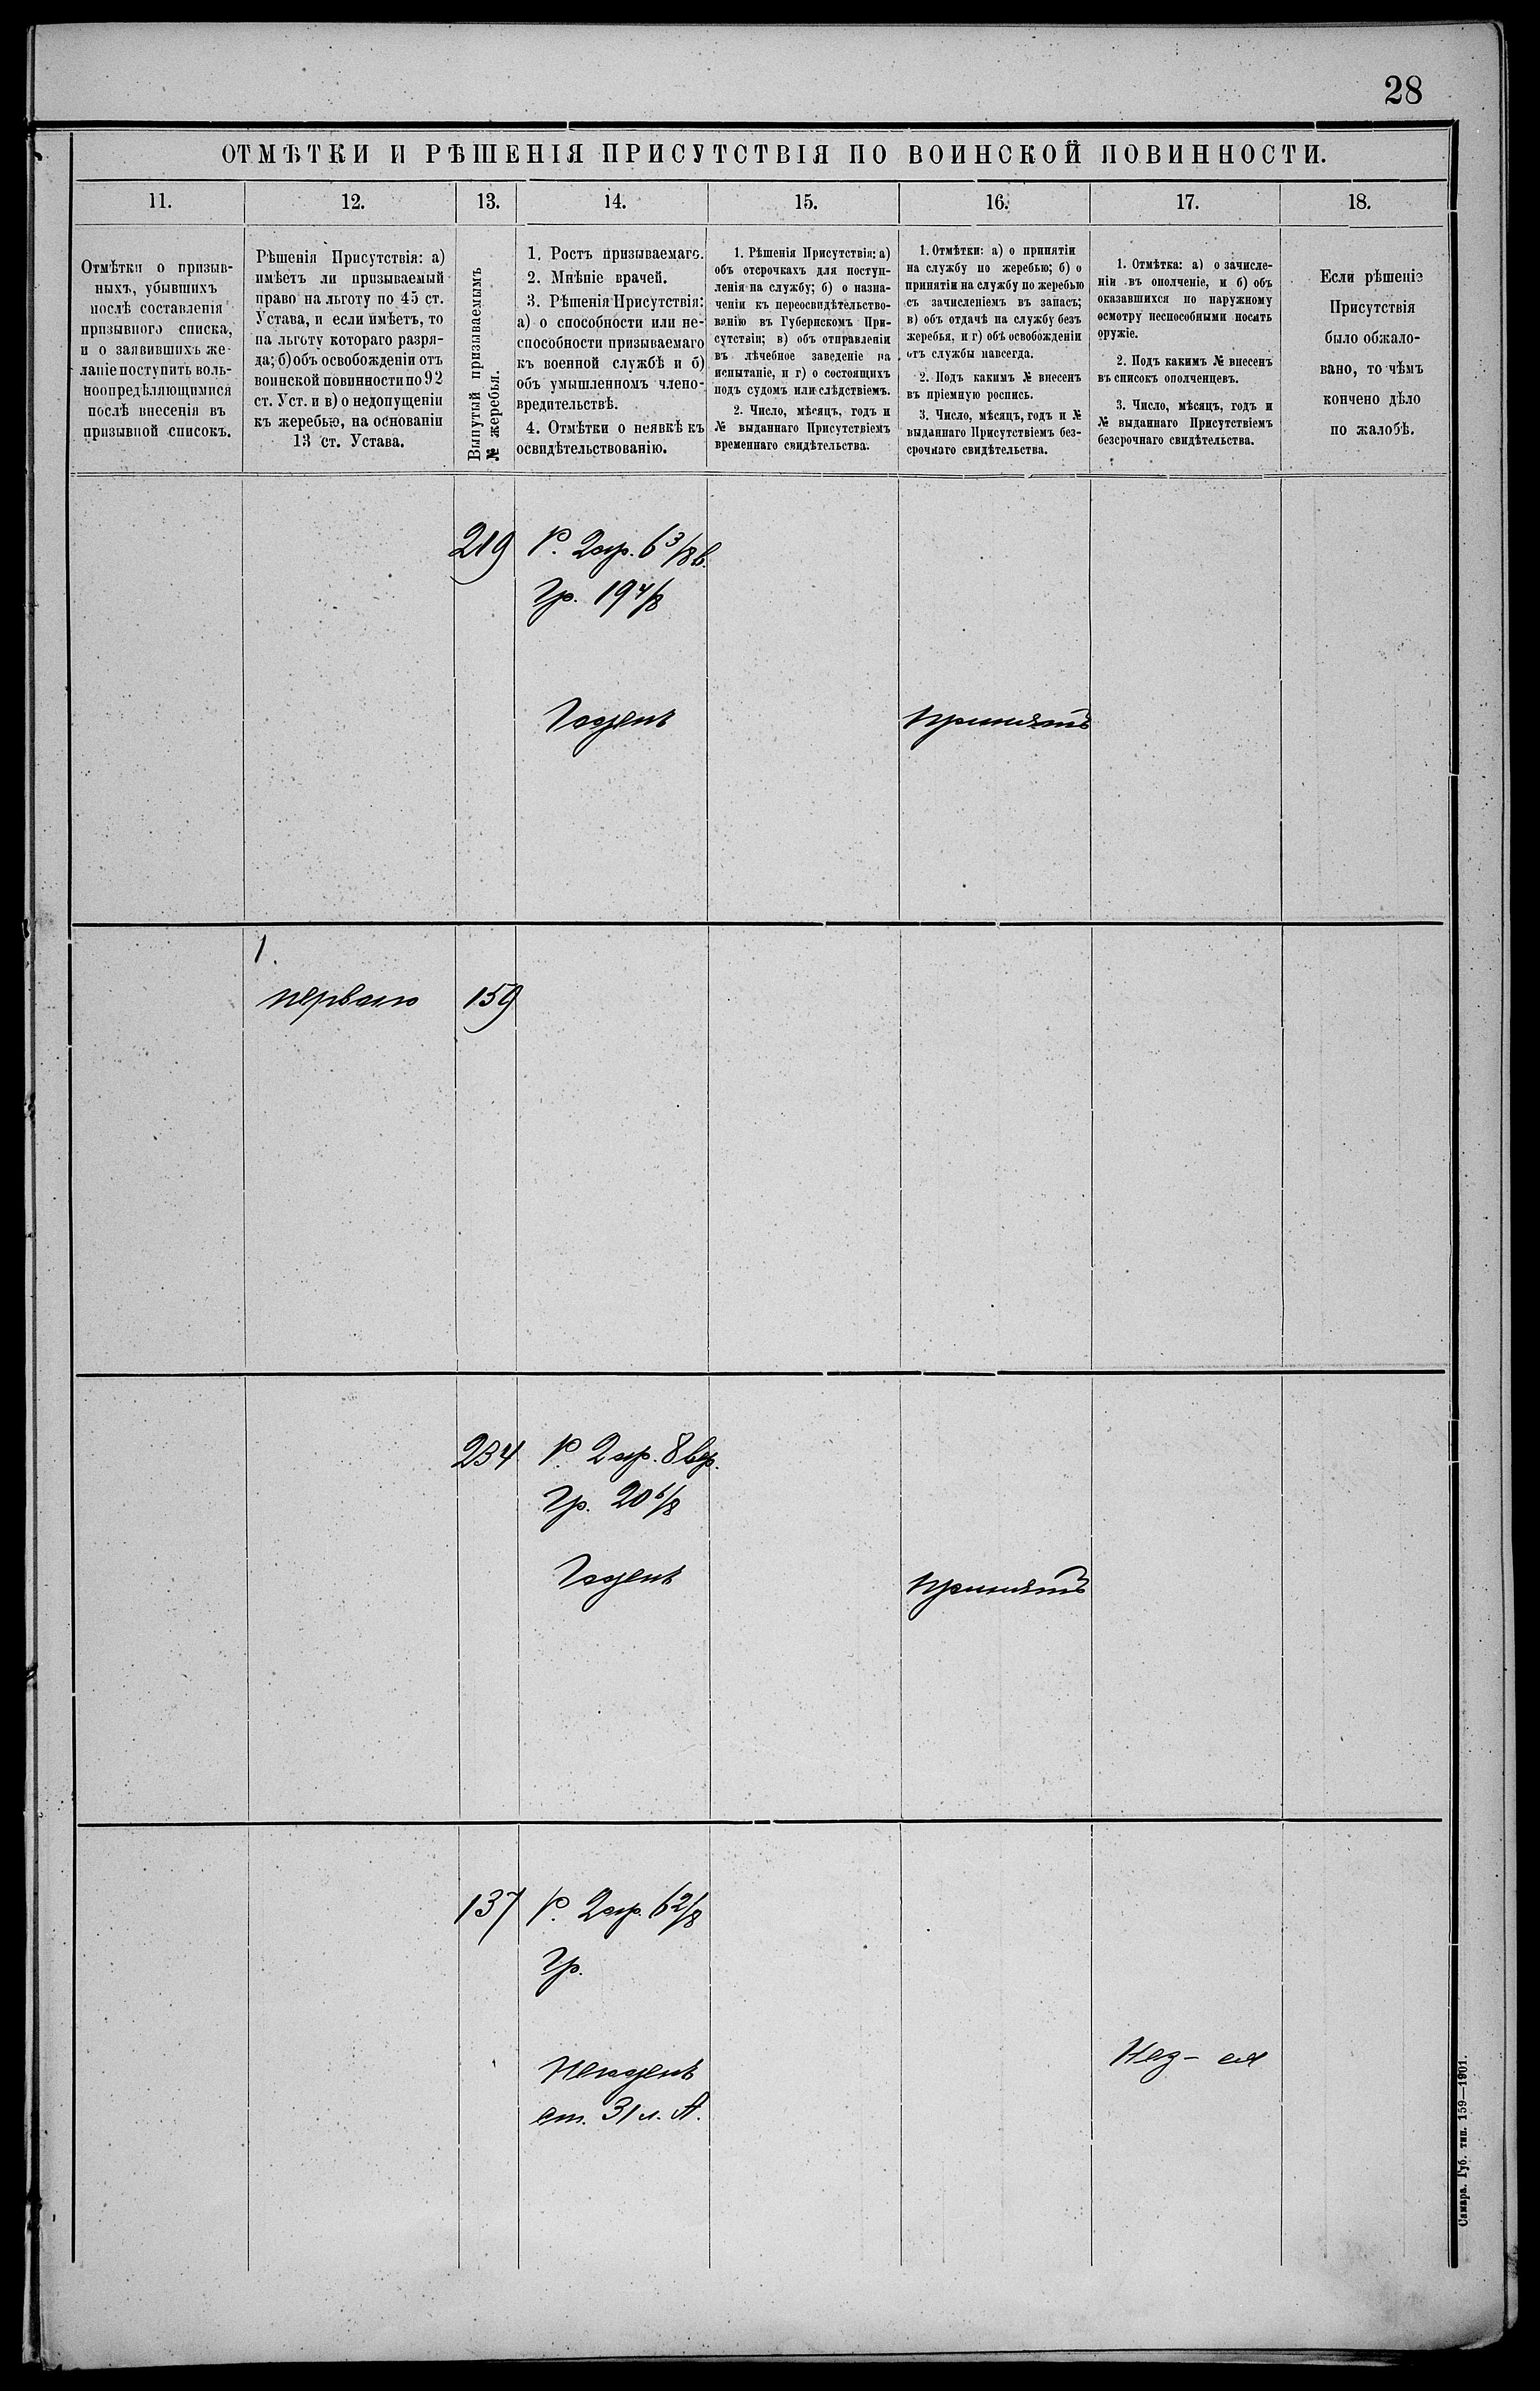 28
ОТМѢТКИ И РѢШЕНІЯ ПРИСУТСТВІЯ ПО ВОИНСКОЙ ПОВИННОСТИ.
11.
12.
13.
14.
15.
16.
17.
18.
Отмѣтки о призыв-
ныхъ, убывшихъ
послѣ составленія
призывного списка,
и о заявившихъ же-
ланіе поступить воль-
ноопредѣляющимися
послѣ внесенія въ
призывной списокъ.
Рѣшенія Присутствія: а)
имѣетъ ли призываемый
право на льготу по 45 ст.
Устава, и если имѣетъ, то
на льготу котораго разря-
да; б) объ освобожденіи отъ
воинской повинности по 92
ст. Уст. и в) о недопущеніи
къ жеребью, на основаніи
13 ст. Устава.
Вынутый призываемымъ
№ жеребья.
1. Ростъ призываемаго.
2. Мнѣніе врачей.
3. Рѣшенія Присутствія:
а) о способности или не-
способности призываемаго
къ военной службѣ и б)
объ умышленномъ члено-
вредительствѣ.
4. Отмѣтки о неявкѣ къ
освидѣтельствованію.
1. Рѣшенія Присутствія: а)
объ отсрочкахъ для поступ-
ленія на службу; б) о назна-
ченіи къ переосвидѣтельство-
ванію въ Губернскомъ При-
сутствіи; в) объ отправленіи
въ лѣчебное заведеніе на
испытаніе, и г) о состоящихъ
подъ судомъ или слѣдствіемъ.
2. Число, мѣсяцъ, годъ и
№ выданнаго Присутствіемъ
временнаго свидѣтельства.
1. Отмѣтки: а) о принятіи
на службу по жеребью; б) о
принятіи на службу по жеребью
съ зачисленіемъ въ запасъ;
в) объ отдачѣ на службу безъ
жеребья, и г) объ освобожденіи
отъ службы навсегда.
2. Подъ какимъ № внесенъ
въ пріемную роспись.
3. Число, мѣсяцъ, годъ и №
выданнаго Присутствіемъ без-
срочнаго свидѣтельства.
1. Отмѣтка: а) о зачисле-
ніи въ ополченіе, и б) объ
оказавшихся по наружному
осмотру неспособными носить
оружіе.
2. Подъ какимъ № внесенъ
въ списокъ ополченцевъ.
3. Число, мѣсяцъ, годъ и
№ выданнаго Присутствіемъ
безсрочнаго свидѣтельства.
Если рѣшеніе
Присутствія
было обжало-
вано, то чѣмъ
кончено дѣло
по жалобѣ.
219 Р. 2 ар. 6 3/8 в.
Гр. 19 4/8
Годенъ принятъ
1.
перваго 159
234 Р. 2 ар. 8 вер.
Гр. 20 6/8
Годенъ принятъ
137 Р. 2 ар. 6 2/8
Гр.
Негоденъ
ст. 31 л. А.
Самара. Губ. тип. 159—1901.